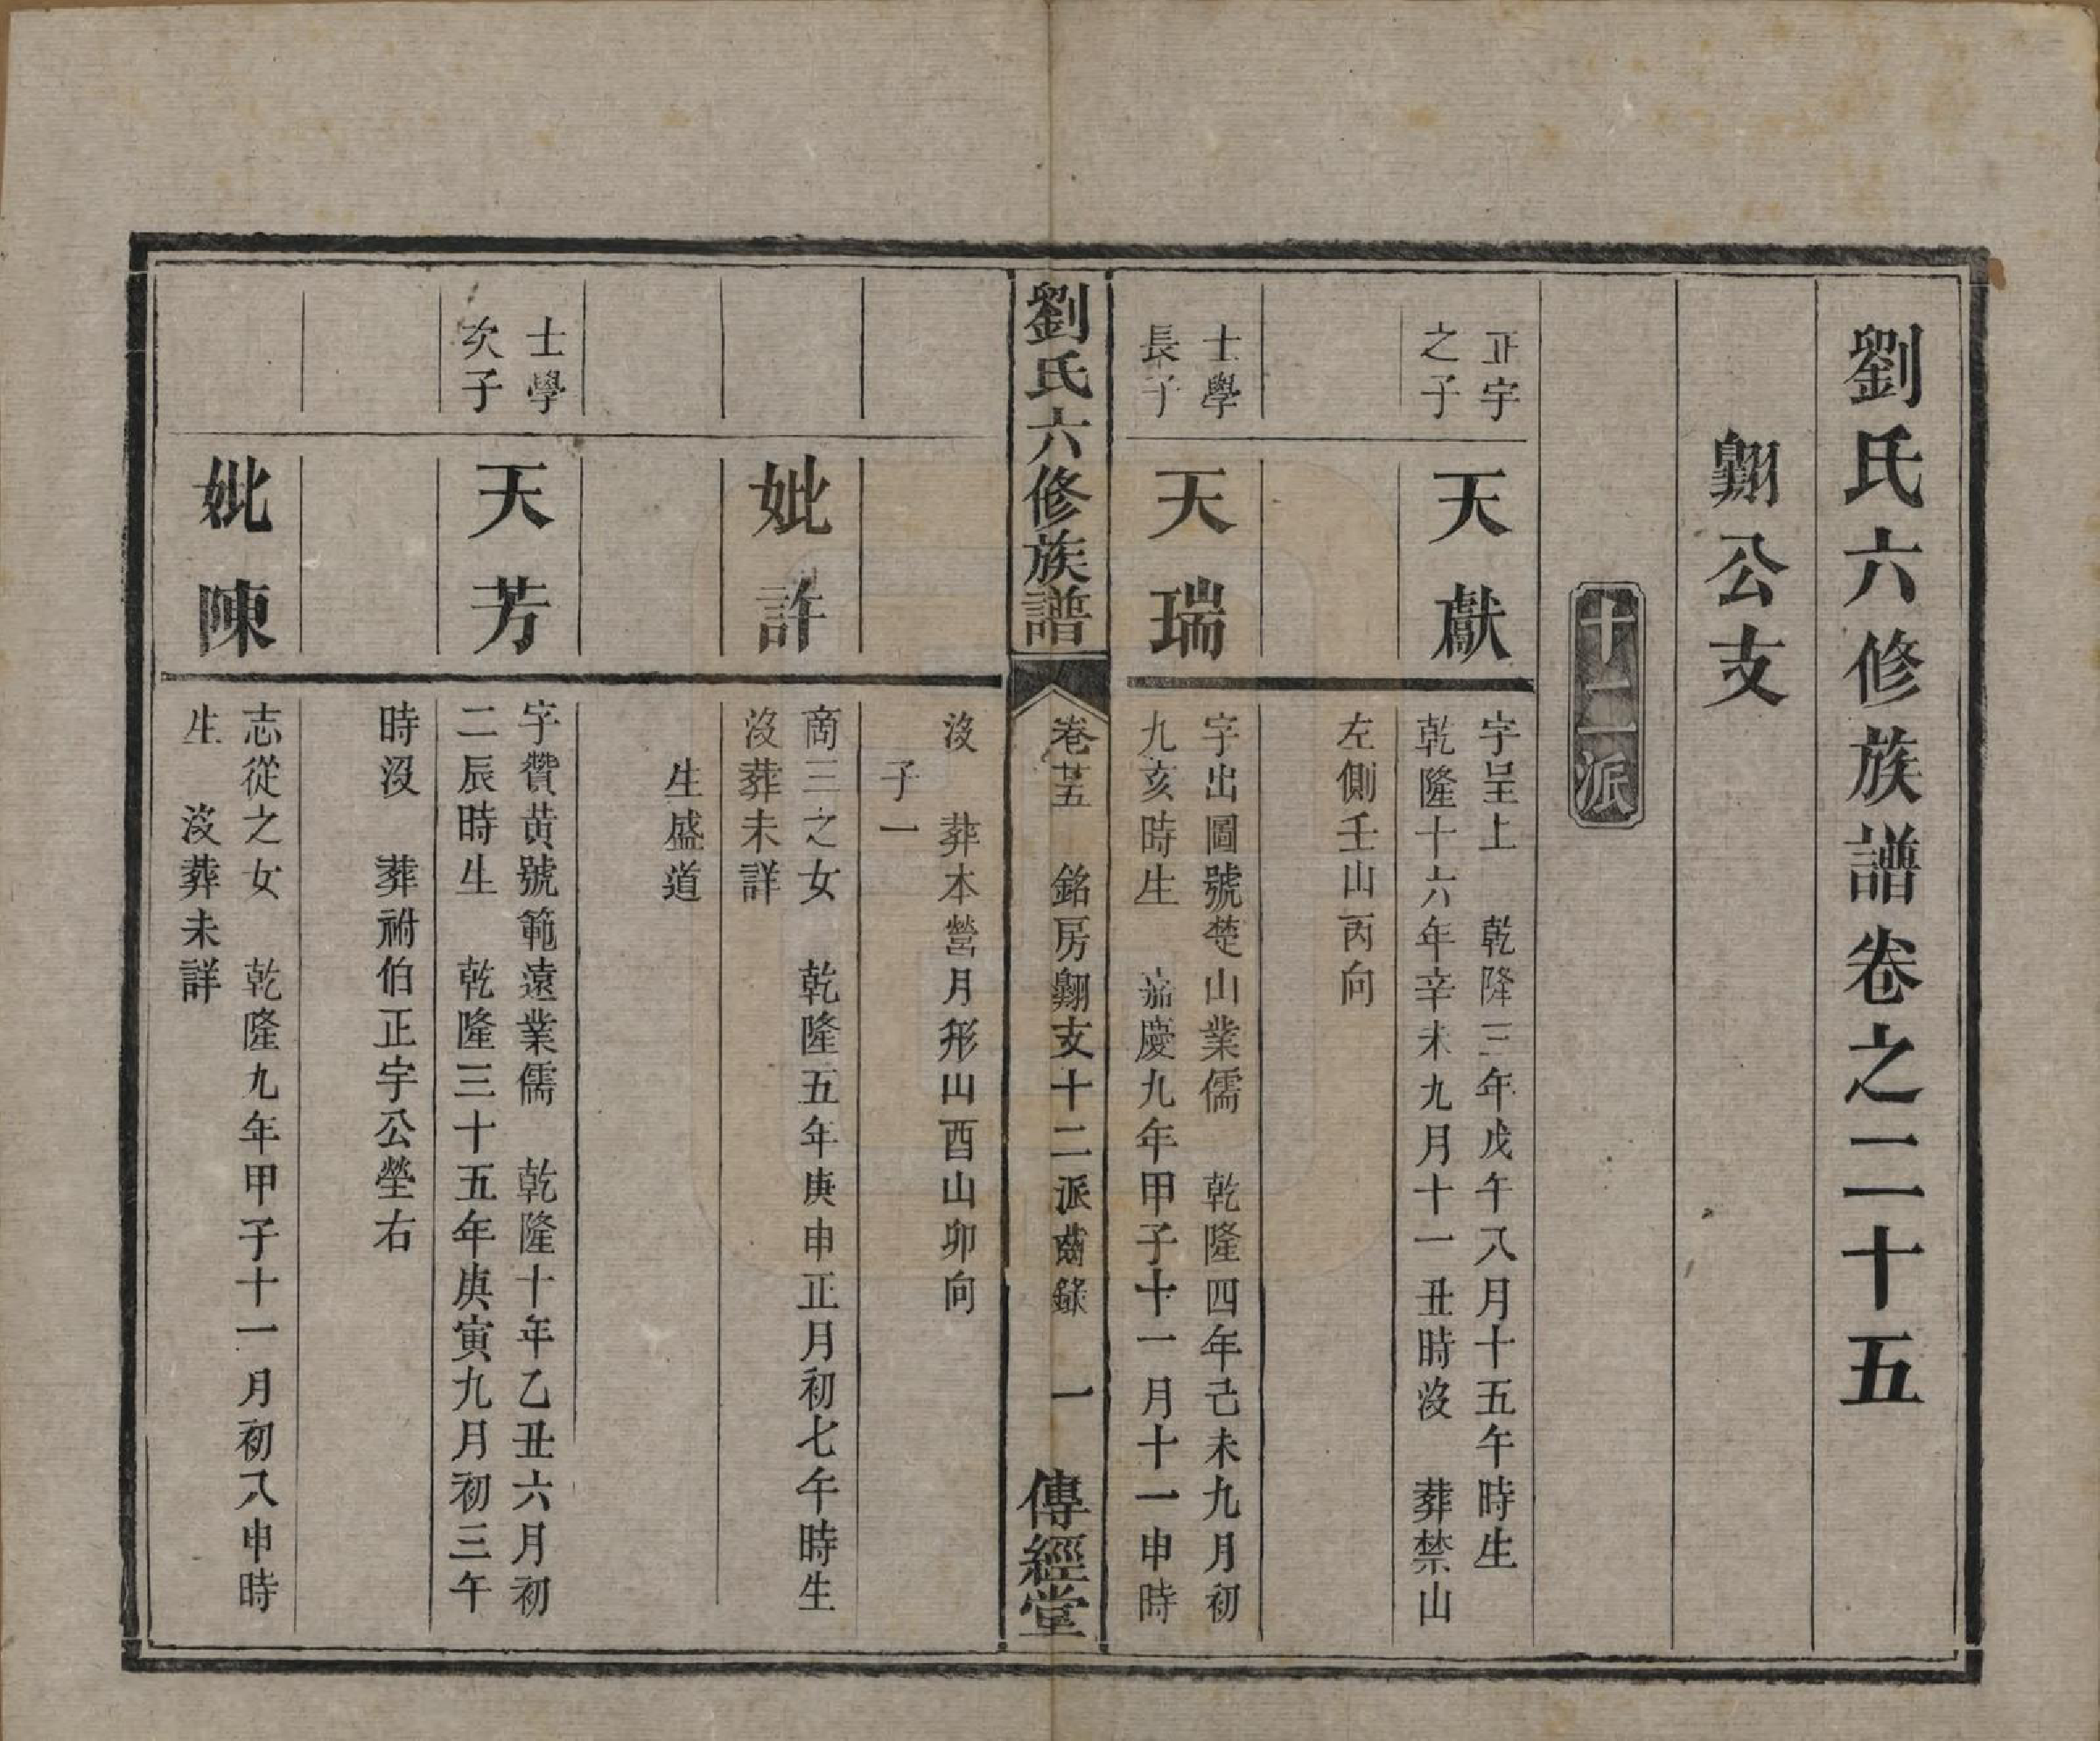 劉氏六修族譜卷之二十五
翱公支
十二派
正宇
之子
天獻
字呈上　乾隆三年戊午八月十五午時生
乾隆十六年辛未九月十一丑時沒　葬禁山
左側壬山丙向
士學
長子
天瑞
字出圖號楚山業儒　乾隆四年己未九月初
九亥時生　嘉慶九年甲子十一月十一申時
劉氏六修族譜
卷廿五　銘房翱支十二派齒錄　一
傳經堂
沒　葬本營月形山酉山卯向
子一
妣許
商三之女　乾隆五年庚申正月初七午時生
沒葬未詳
生盛道
士學
次子
天芳
字贊黃號範遠業儒　乾隆十年乙丑六月初
二辰時生　乾隆三十五年庚寅九月初三午
時沒　葬祔伯正宇公塋右
妣陳
志從之女　乾隆九年甲子十一月初八申時
生　沒葬未詳